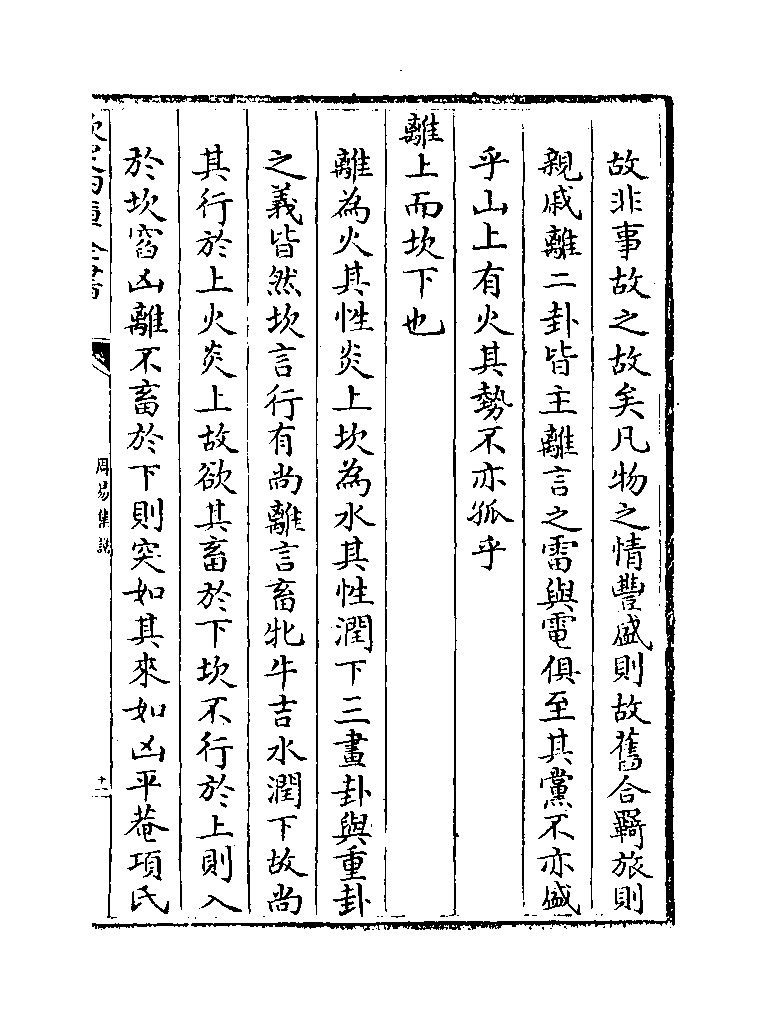 故非事故之故矣凡物之情豐盛則故舊合羇旅則
親戚離二卦皆主離言之雷與電俱至其黨不亦盛
乎山上有火其勢不亦孤乎
離上而坎下也
離為火其性炎上坎為水其性潤下三畫卦與重卦
之義皆然坎言行有尚離言畜牝牛吉水潤下故尚
其行於上火炎上故欲其畜於下坎不行於上則入
於坎窞凶離不畜於下則突如其來如凶平菴項氏
周易集說
十二